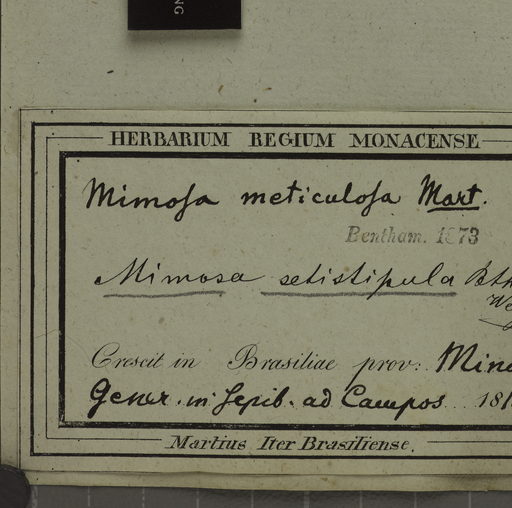 NG
HERBARIUM REGIUM MONACENSE
Mimoſa meticuloſa Mart.
Bentham. 1873
Mimosa setistipula Bth
Crescit in Brasiliae prov: Mina
Gener. in Sepib. ad Campos 181
Martius Iter Brasiliense.